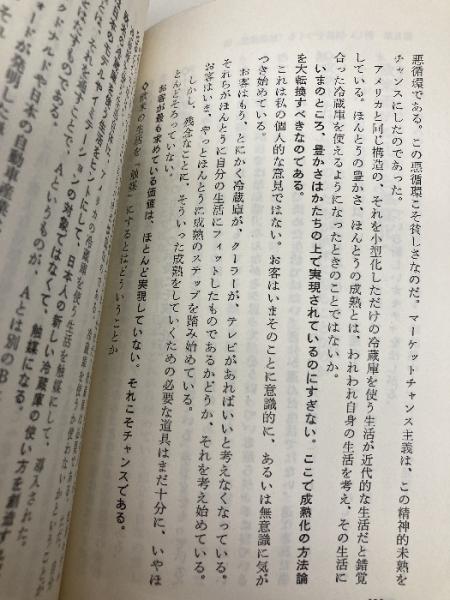 悪循環である。この悪循環こそ貧しさなのだ。マーケットチャンス主義は、この精神的未熟を
チャンスにしたのであった。
アメリカと同じ構造の、それを小型化しただけの冷蔵庫を使う生活が近代的な生活だと錯覚
している。ほんとうの豊かさ、ほんとうの成熟とは、われわれ自身の生活を考え、その生活に
合った冷蔵庫を使えるようになったときのことではないか。
いまのところ、豊かさはかたちの上で実現されているのにすぎない。ここで成熟化の方法論
を大転換すべきなのである。
これは私の個人的な意見ではない。お客はいまそのことに意識的に、あるいは無意識に気が
つき始めている。
お客はもう、とにかく冷蔵庫が、クーラーが、テレビがあればいいと考えなくなっている。
それらがほんとうに自分の生活にフィットしたものであるかどうか、それを考え始めている。
お客はいま、やっとほんとうに成熟のステップを踏み始めている。
しかし、残念なことに、そういった成熟をしていくための必要な道具はまだ十分に、いやほ
とんどそろっていない。
お客が最も求めている価値は、ほとんど実現していない。それこそチャンスである。
の生活を「触媒」にするとはどういうことか
カの冷蔵庫を使う生活を触媒にして、
にして、日本人の新しい冷蔵庫の使い方を創造する
の対象ではなくて、触媒になる。
というものが、Aとは別のB
日本の自動車産業
ードが発明した